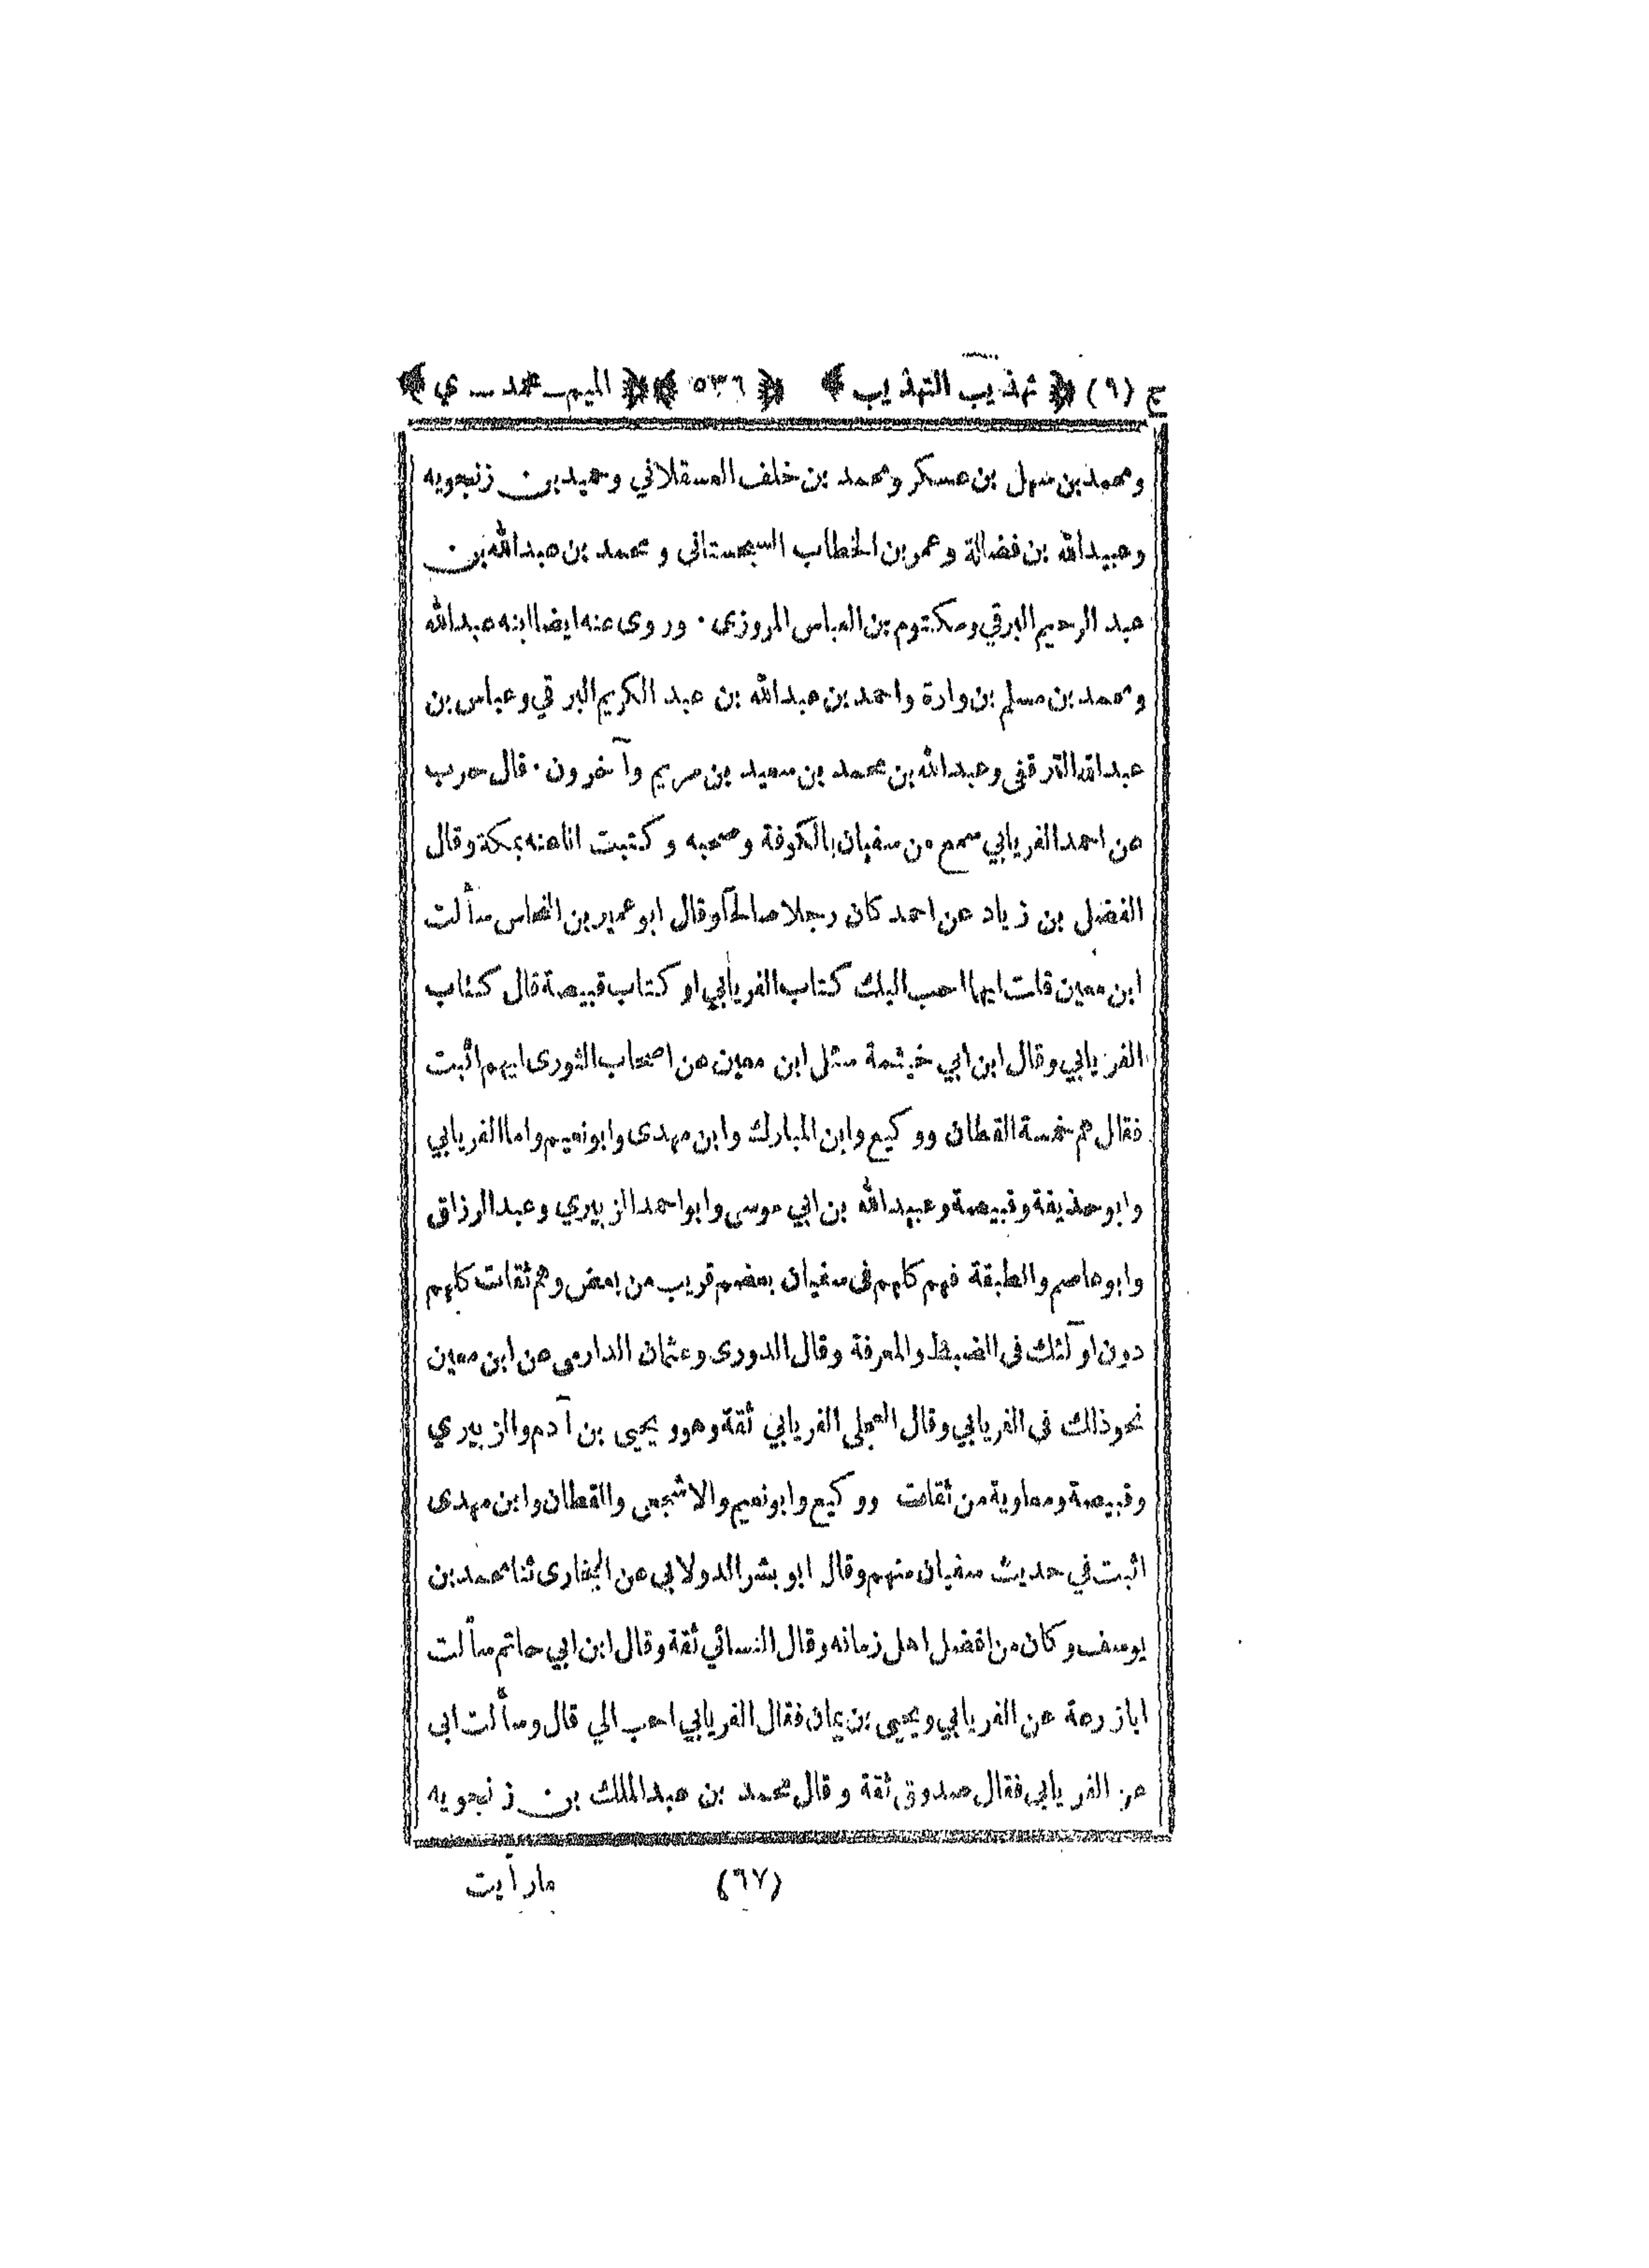 ج (٩) ﴿ تهذيب التهذيب ﴾ ﴿ ٥٣٦ ﴾ ﴿ الميم ـ محمد ـ ي ﴾
ومحمد بن سهل بن عسكر ومحمد بن خلف العسقلاني وحميد بن زنجويه
وعبيدالله بن فضالة وعمر بن الخطاب السجستانى ومحمد بن عبدالله بن
عبد الرحيم البرقي ومكتوم بن العباس المروزى ٠ وروى عنه ايضا ابنه عبدالله
ومحمد بن مسلم بن وارة واحمد بن عبدالله بن عبد الكريم البرقي وعباس بن
عبدالله الترقفى وعبدالله بن محمد بن سعيد بن مريم وآخرون ٠ قال حرب
عن احمد الفريابي سمع من سفيان بالكوفة وصحبه وكتبت انا عنه بمكة وقال
الفضل بن زياد عن احمد كان رجلا صالحا وقال ابو عمير بن النحاس سألت
ابن معين قلت ايهما احب اليك كتاب الفريابي او كتاب قبيصة قال كتاب
الفريابي وقال ابن ابي خيثمة سئل ابن معين عن اصحاب الثورى ايهم اثبت
فقال هم خمسة القطان ووكيع وابن المبارك وابن مهدى وابو نعيم واما الفريابي
وابو حذيفة وقبيصة وعبيدالله بن ابي موسى وابو احمد الزبيري وعبد الرزاق
وابو عاصم والطبقة فهم كلهم فى سفيان بعضهم قريب من بعض وهم ثقات كلهم
دون اولئك فى الضبط والمعرفة وقال الدورى وعثمان الدارمى عن ابن معين
نحو ذلك فى الفريابي وقال العجلى الفريابي ثقة وهو ويحيى بن آدم والزبيري
وقبيصة ومعاوية من ثقات ووكيع وابو نعيم والاشجعى والقطان وابن مهدى
اثبت في حديث سفيان منهم وقال ابو بشر الدولابي عن البخارى ثنا محمد بن
يوسف وكان من افضل اهل زمانه وقال النسائي ثقة وقال ابن ابي حاتم سألت
ابا زرعة عن الفريابي ويحيى بن يمان فقال الفريابي احب الي قال وسألت ابى
عن الفريابي فقال صدوق ثقة وقال محمد بن عبدالملك بن زنجويه
(٦٧) ما رأيت